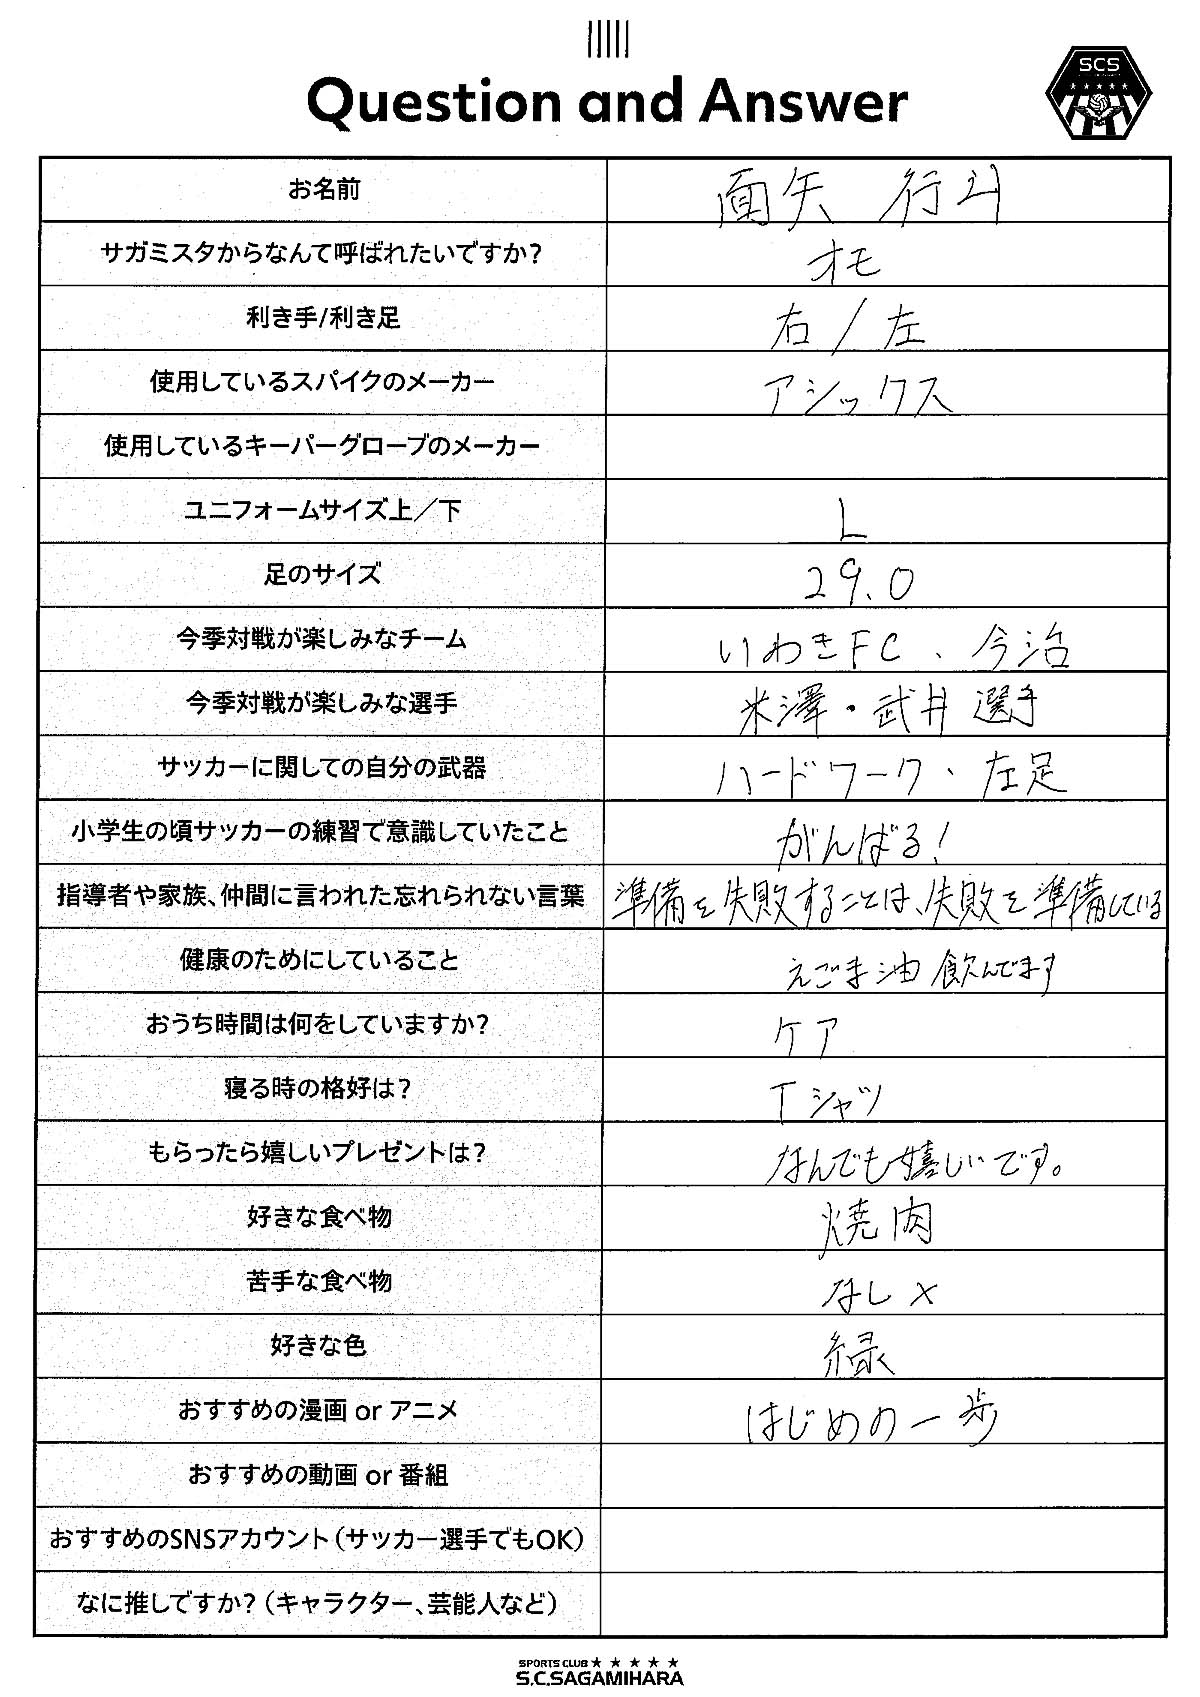 Question and Answer
SCS
お名前 面矢 行斗
サガミスタからなんて呼ばれたいですか? オモ
利き手/利き足 右/左
使用しているスパイクのメーカー アシックス
使用しているキーパーグローブのメーカー
ユニフォームサイズ上/下 L
足のサイズ 29.0
今季対戦が楽しみなチーム いわきFC、今治
今季対戦が楽しみな選手 米澤・武井 選手
サッカーに関しての自分の武器 ハードワーク、左足
小学生の頃サッカーの練習で意識していたこと がんばる!
指導者や家族、仲間に言われた忘れられない言葉 準備を失敗することは、失敗を準備している
健康のためにしていること えごま油 飲んでます
おうち時間は何をしていますか? ケア
寝る時の格好は? Tシャツ
もらったら嬉しいプレゼントは? なんでも嬉しいです。
好きな食べ物 焼肉
苦手な食べ物 なし×
好きな色 緑
おすすめの漫画 or アニメ はじめの一歩
おすすめの動画 or 番組
おすすめのSNSアカウント(サッカー選手でもOK)
なに推しですか?(キャラクター、芸能人など)
SPORTS CLUB ★ ★ ★ ★ ★
S.C.SAGAMIHARA